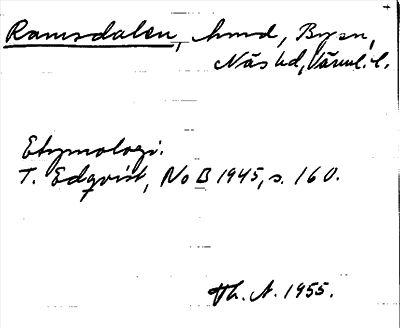 Ramsdalen, hmd, Byn,
Näs hd, Värml. l.
Etymologi.
T. Edqvist, NoB 1945, s. 160.
Th. A. 1955.